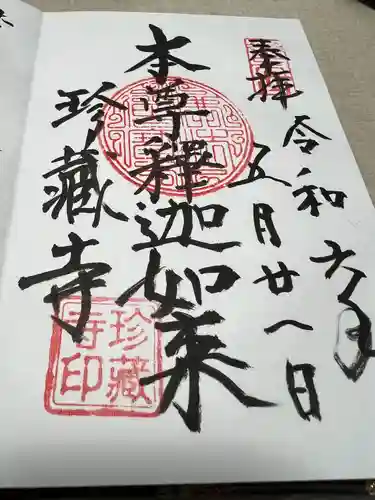 奉拝
令和六年
五月廿八日
本尊釋迦如来
珍藏寺
珍藏寺印